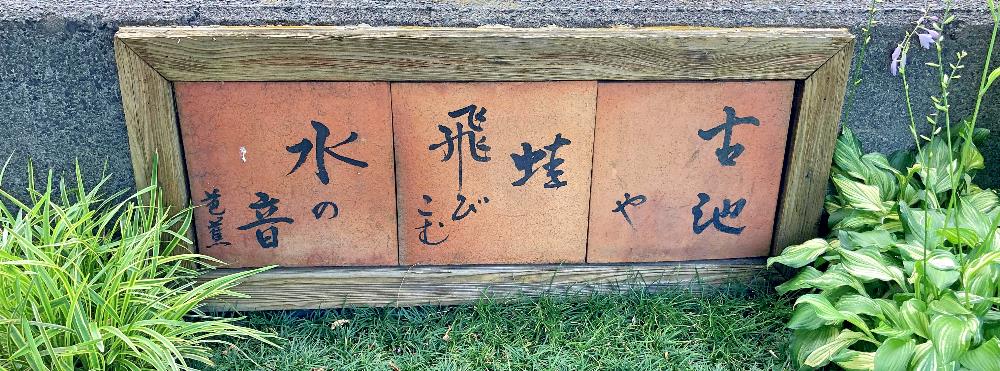 古池
や
蛙
飛び
こむ
水の
音
芭蕉